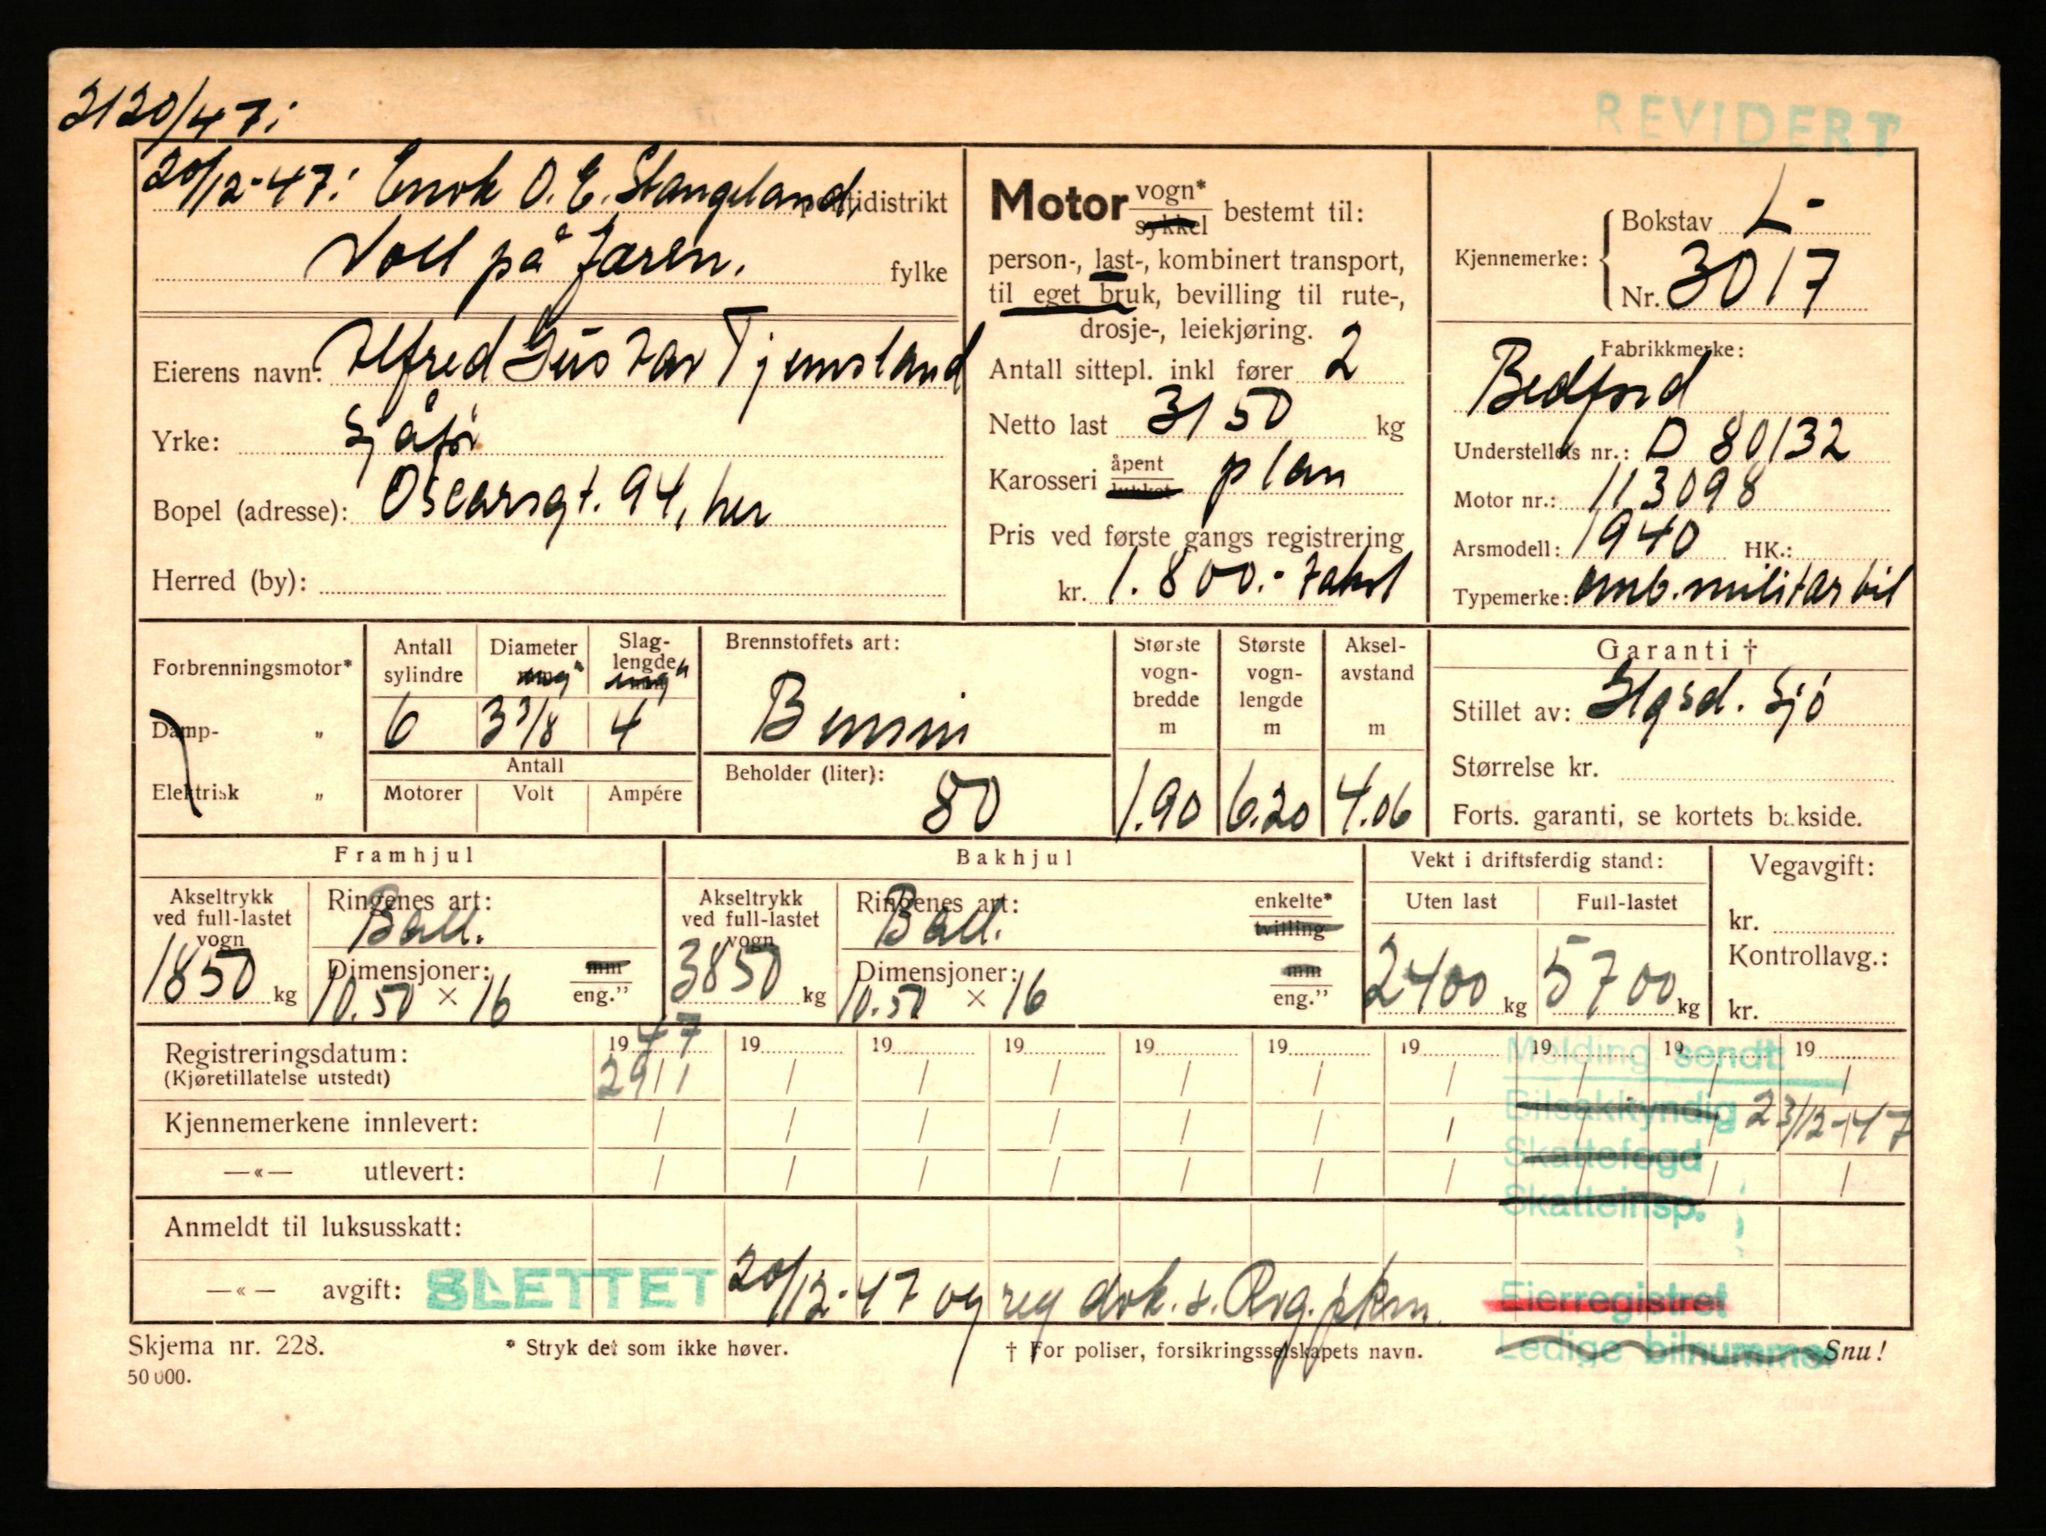 2120/47:
REVIDERT
20/12-47: Enok O. E. Stangeland, politidistrikt
Voll på Jæren. fylke
Eierens navn: Alfred Gustav Tjemsland
Yrke: Sjåfør
Bopel (adresse): Oscarsgt. 94, her
Herred (by):
Motor vogn* / sykkel bestemt til:
person-, last-, kombinert transport,
til eget bruk, bevilling til rute-,
drosje-, leiekjøring.
Antall sittepl. inkl fører 2
Netto last 3150 kg
Karosseri åpent / lukket plan
Pris ved første gangs registrering
kr. 1.800.- takst
Kjennemerke: Bokstav L-
Nr. 3017
Fabrikkmerke:
Bedford
Understellets nr.: D 80132
Motor nr.: 113098
Arsmodell: 1940 HK.:
Typemerke: omb. militær bil
Forbrenningsmotor*
Damp- "
Elektrisk "
Antall sylindre
6
Diameter
3 3/8
Slag-
lengde
4
Antall
Motorer Volt Ampére
Brennstoffets art:
Bensin
Beholder (liter): 80
Største
vogn-
bredde
m
1.90
Største
vogn-
lengde
m
6.20
Aksel-
avstand
m
4.06
Garanti †
Stillet av: Slgsd. Sjø
Størrelse kr.
Forts. garanti, se kortets bakside.
Framhjul
Akseltrykk
ved full-lastet
vogn
1850 kg
Ringenes art:
Ball.
Dimensjoner: mm
10.50 × 16 eng."
Bakhjul
Akseltrykk
ved full-lastet
vogn
3850 kg
Ringenes art: enkelte*
Ball. tvilling
Dimensjoner: mm
10.50 × 16 eng."
Vekt i driftsferdig stand:
Uten last Full-lastet
2400 kg 5700 kg
Vegavgift:
kr.
Kontrollavg.:
kr.
Registreringsdatum: 1947 19 19 19 19 19 19 19 19 19
(Kjøretillatelse utstedt) 29/1 / / / / / / / / /
Kjennemerkene innlevert: / / / / / / / / / /
—«— utlevert: / / / / / / / / / /
Melding sendt:
Bilsakkyndig 23/12-47
Skattefogd
Skatteinsp.
Eierregistret
Ledige bilnummer
Anmeldt til luksusskatt:
—«— avgift: SLETTET 20/12-47 og reg dok. s. Rog. pkm.
Skjema nr. 228. * Stryk det som ikke høver. † For poliser, forsikringsselskapets navn. Snu!
50 000.